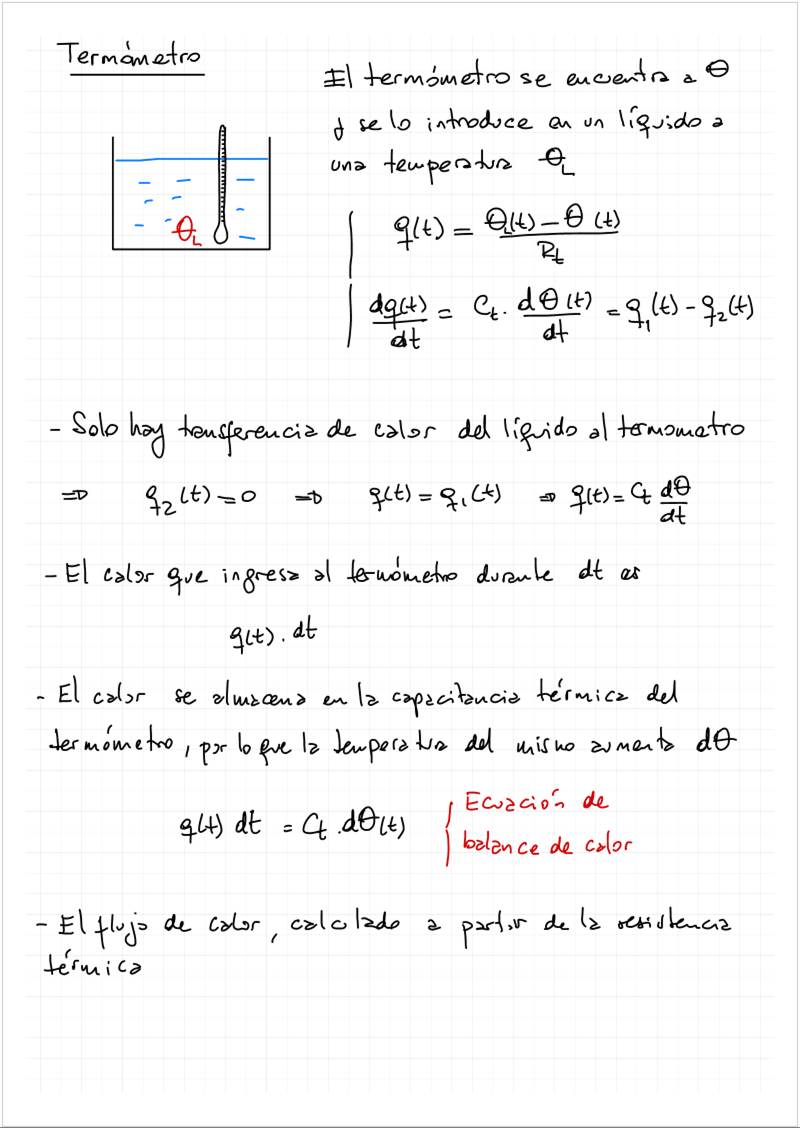 Termómetro
El termómetro se encuentra a θ
y se lo introduce en un líquido a
una temperatura θ_L
θ_L
q(t) = (θ_L(t) - θ(t)) / R_t
dq(t)/dt = C_t . dθ(t)/dt = q_1(t) - q_2(t)
- Solo hay transferencia de calor del líquido al termometro
⇒ q_2(t) = 0 ⇒ q(t) = q_1(t) ⇒ q(t) = C_t dθ/dt
- El calor que ingresa al termómetro durante dt es
q(t) . dt
- El calor se almacena en la capacitancia térmica del
termómetro, por lo que la temperatura del mismo aumenta dθ
q(t) dt = C_t . dθ(t)
Ecuación de
balance de calor
- El flujo de calor, calculado a partir de la resistencia
térmica